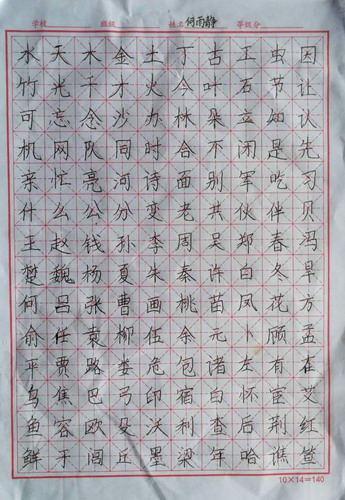 学校 班级 姓名 何雨静 等级分
水天木金土丁古工虫因
竹光千才火今叶石节让
可忘念沙办林朵立知认
机网队同时合不闲是先
亲忙亮河诗面别军吃习
什么公分变老共伙伴贝
王赵钱孙李周吴郑春冯
楚魏杨夏朱秦许白冬早
何吕张曹画桃苗凤花方
俞任袁柳伍余元卜顾孟
平贾路娄危包诸左有在
乌焦巴弓印宿白怀宦艾
鱼容欧殳沃利查后荆红
鲜于闾丘墨梁年哈谯笪
10×14=140